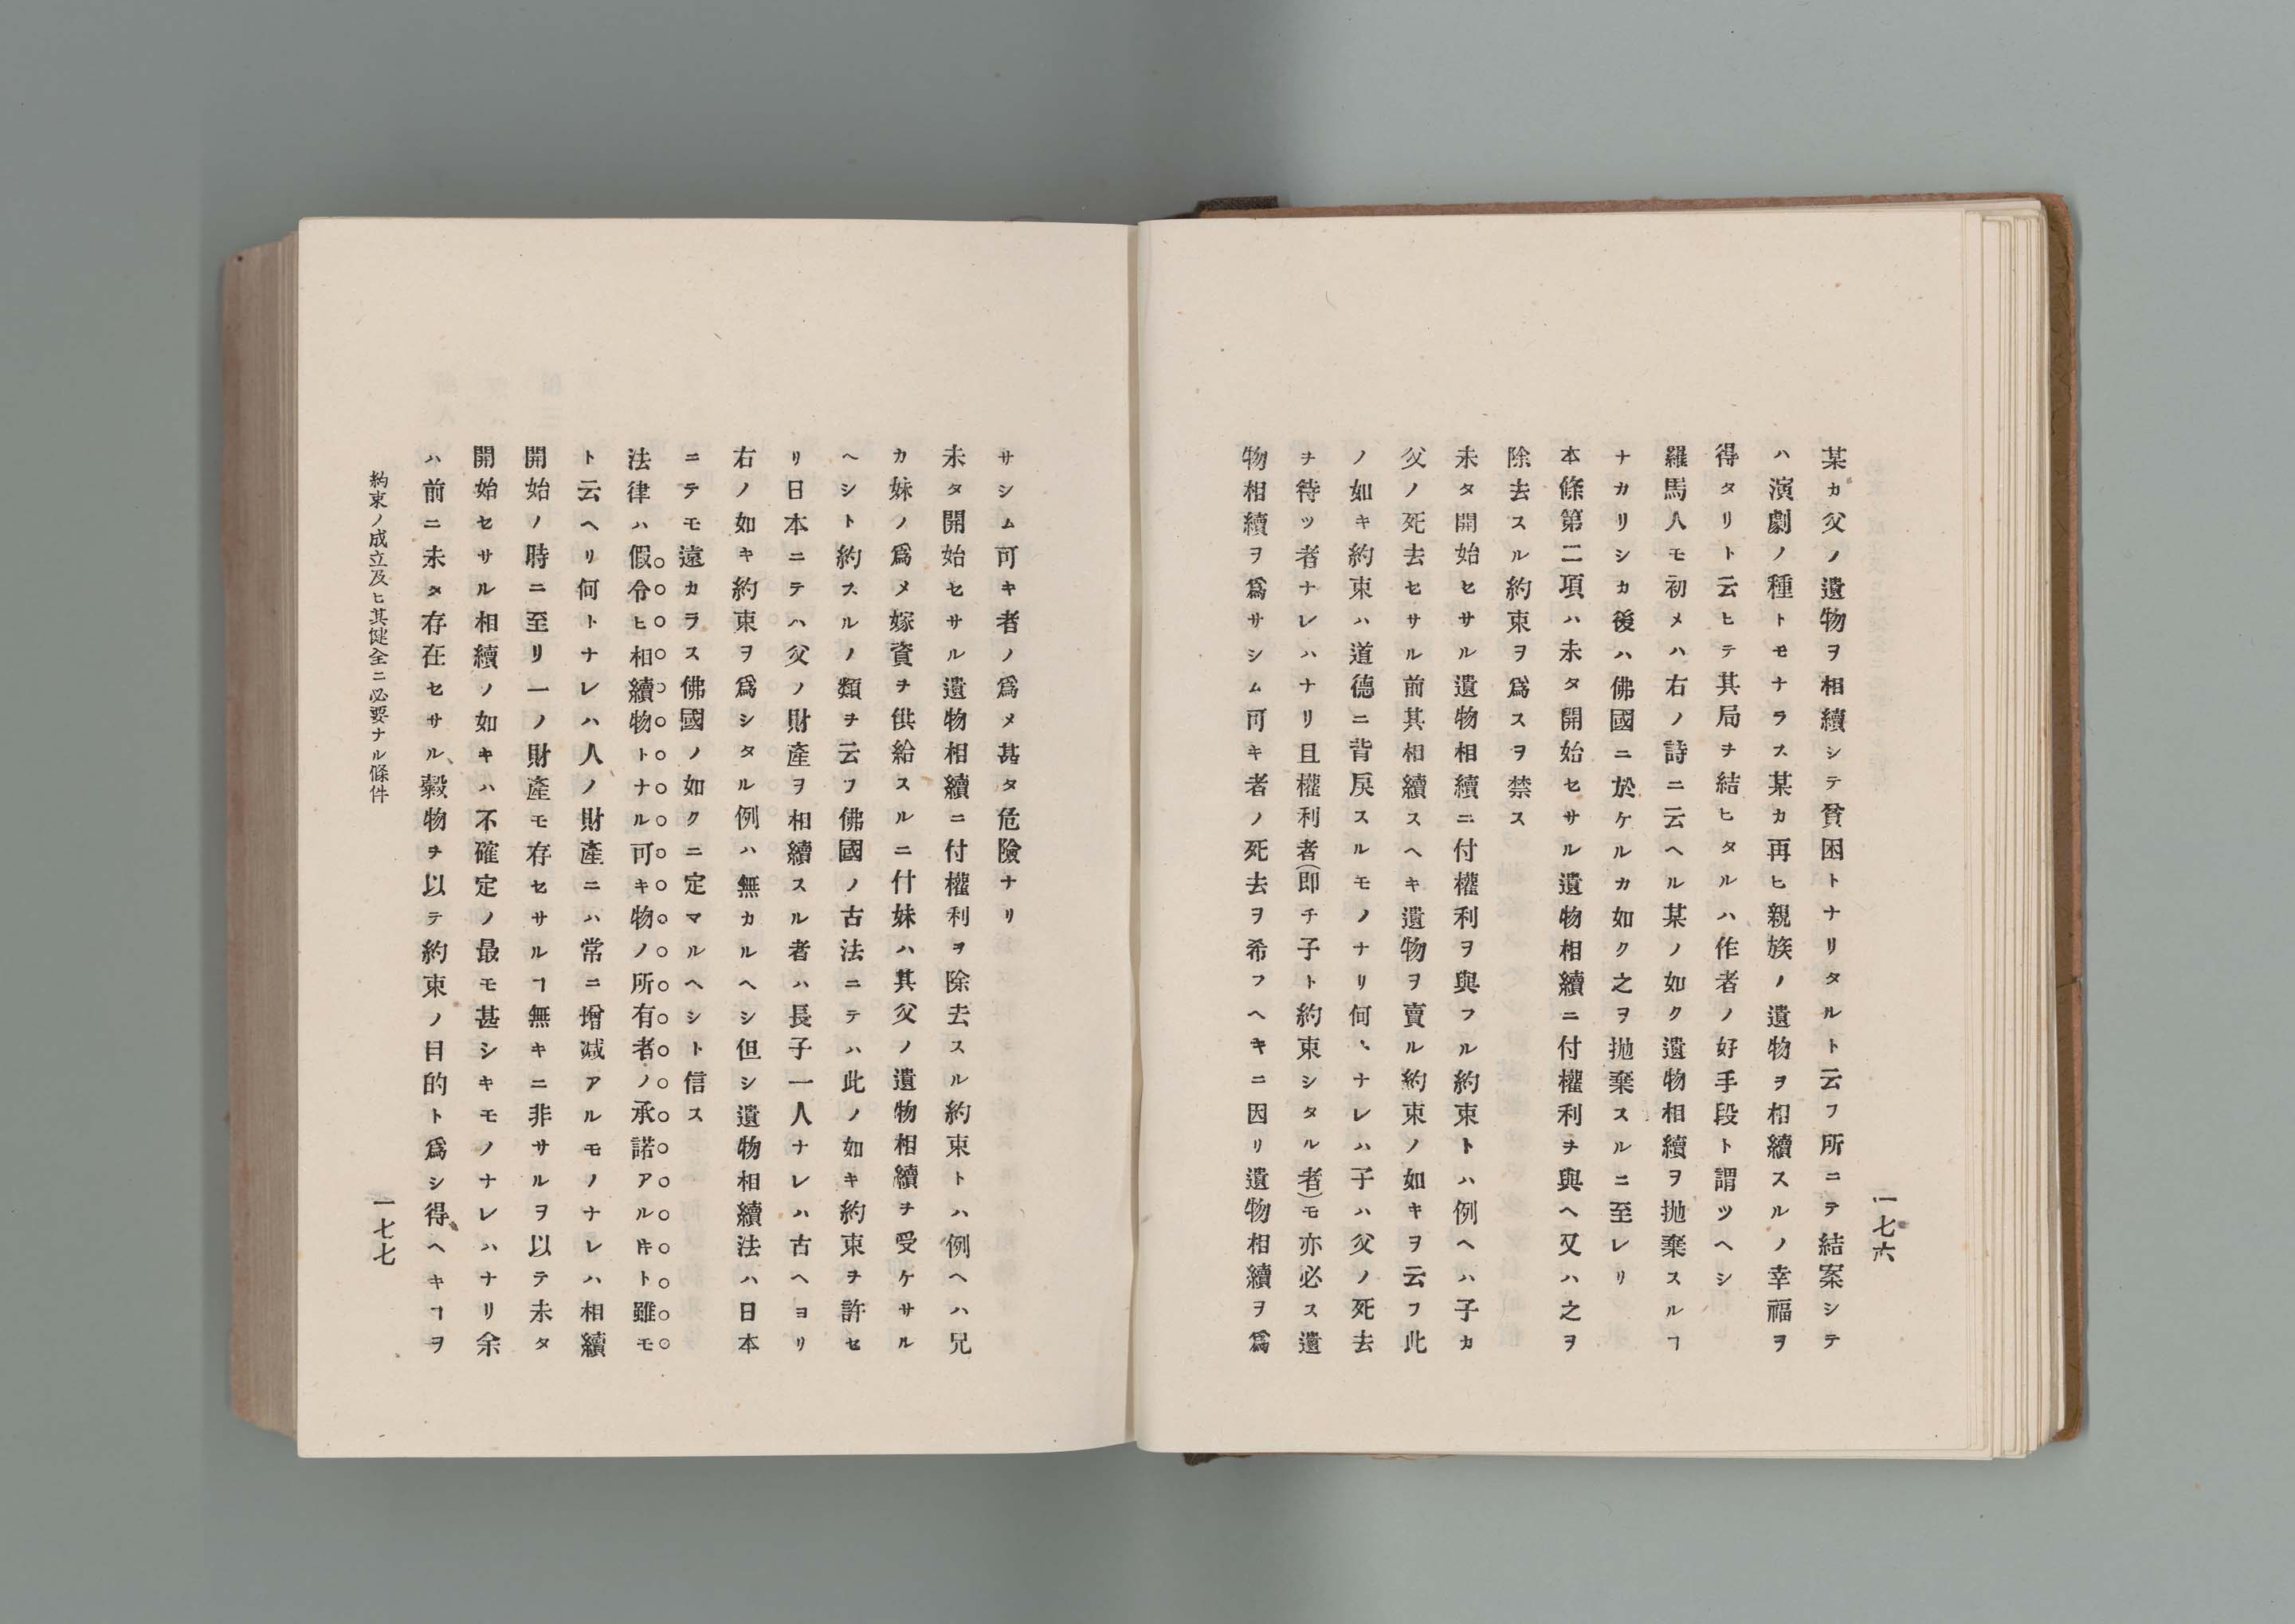 一七六
某カ父ノ遺物ヲ相續シテ貧困トナリタルト云フ所ニテ結案シテ
ハ演劇ノ種トモナラス某カ再ヒ親族ノ遺物ヲ相續スルノ幸福ヲ
得タリト云ヒテ其局ヲ結ヒタルハ作者ノ好手段ト謂ツヘシ
羅馬人モ初メハ右ノ詩ニ云ヘル某ノ如ク遺物相續ヲ抛棄スルヿ
ナカリシカ後ハ佛國ニ於ケルカ如ク之ヲ抛棄スルニ至レリ
本條第二項ハ未タ開始セサル遺物相續ニ付權利ヲ與ヘ又ハ之ヲ
除去スル約束ヲ爲スヲ禁ス
未タ開始セサル遺物相續ニ付權利ヲ與フル約束トハ例ヘハ子カ
父ノ死去セサル前其相續スヘキ遺物ヲ賣ル約束ノ如キヲ云フ此
ノ如キ約束ハ道德ニ背戾スルモノナリ何トナレハ子ハ父ノ死去
ヲ待ツ者ナレハナリ且權利者(即チ子ト約束シタル者)モ亦必ス遺
物相續ヲ爲サシム可キ者ノ死去ヲ希フヘキニ因リ遺物相續ヲ爲
サシム可キ者ノ爲メ甚タ危險ナリ
未タ開始セサル遺物相續ニ付權利ヲ除去スル約束トハ例ヘハ兄
カ妹ノ爲メ嫁資ヲ供給スルニ付妹ハ其父ノ遺物相續ヲ受ケサル
ヘシト約スルノ類ヲ云フ佛國ノ古法ニテハ此ノ如キ約束ヲ許セ
リ日本ニテハ父ノ財產ヲ相續スル者ハ長子一人ナレハ古ヘヨリ
右ノ如キ約束ヲ爲シタル例ハ無カルヘシ但シ遺物相續法ハ日本
ニテモ遠カラス佛國ノ如クニ定マルヘシト信ス
法律ハ假令ヒ相續物トナル可キ物ノ所有者ノ承諾アルモト雖モ
ト云ヘリ何トナレハ人ノ財產ニハ常ニ增減アルモノナレハ相續
開始ノ時ニ至リ一ノ財產モ存セサルヿ無キニ非サルヲ以テ未タ
開始セサル相續ノ如キハ不確定ノ最モ甚シキモノナレハナリ余
ハ前ニ未タ存在セサル穀物ヲ以テ約束ノ目的ト爲シ得ヘキヿヲ
約束ノ成立及ヒ其健全ニ必要ナル條件
一七七